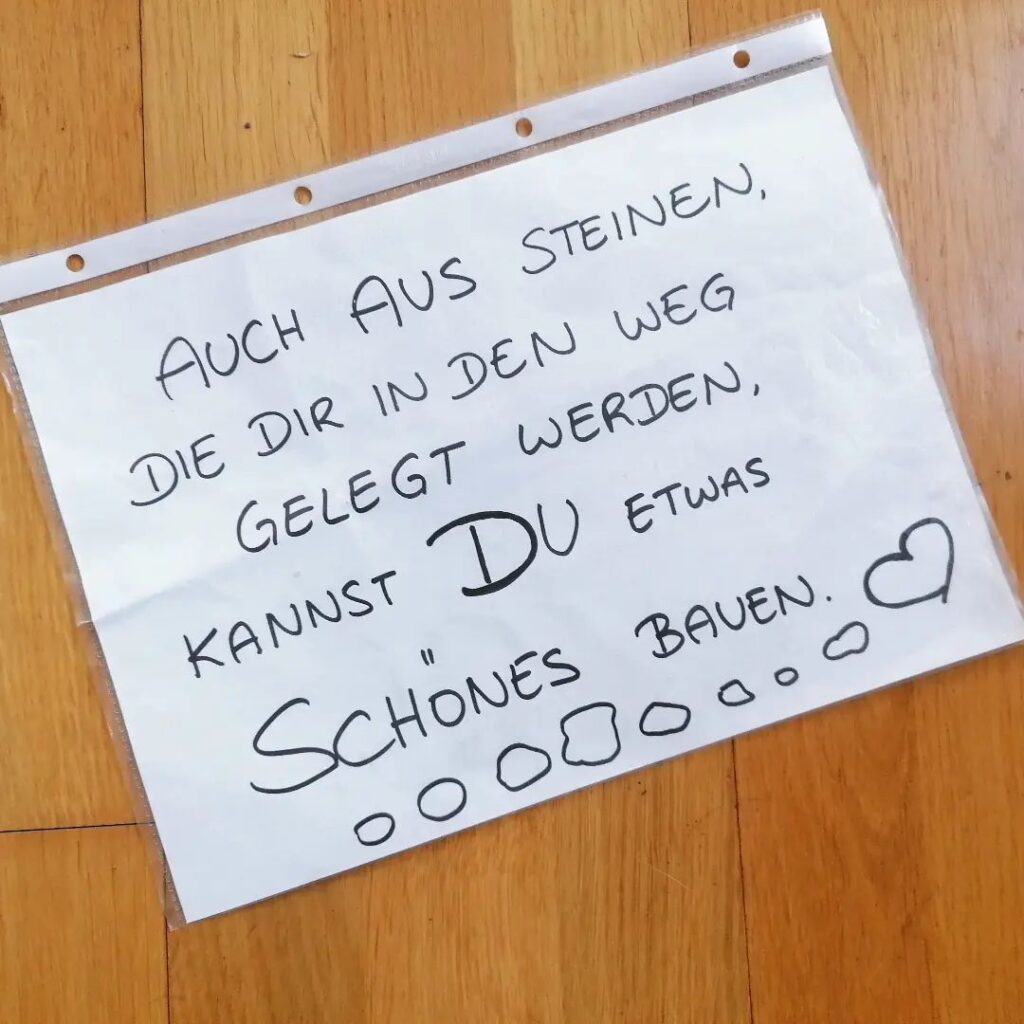 AUCH AUS STEINEN,
DIE DIR IN DEN WEG
GELEGT WERDEN,
KANNST DU ETWAS
SCHÖNES BAUEN.